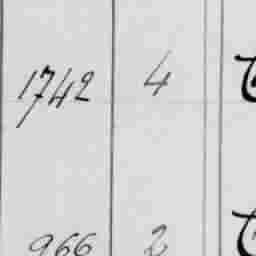 1742 4
966 2